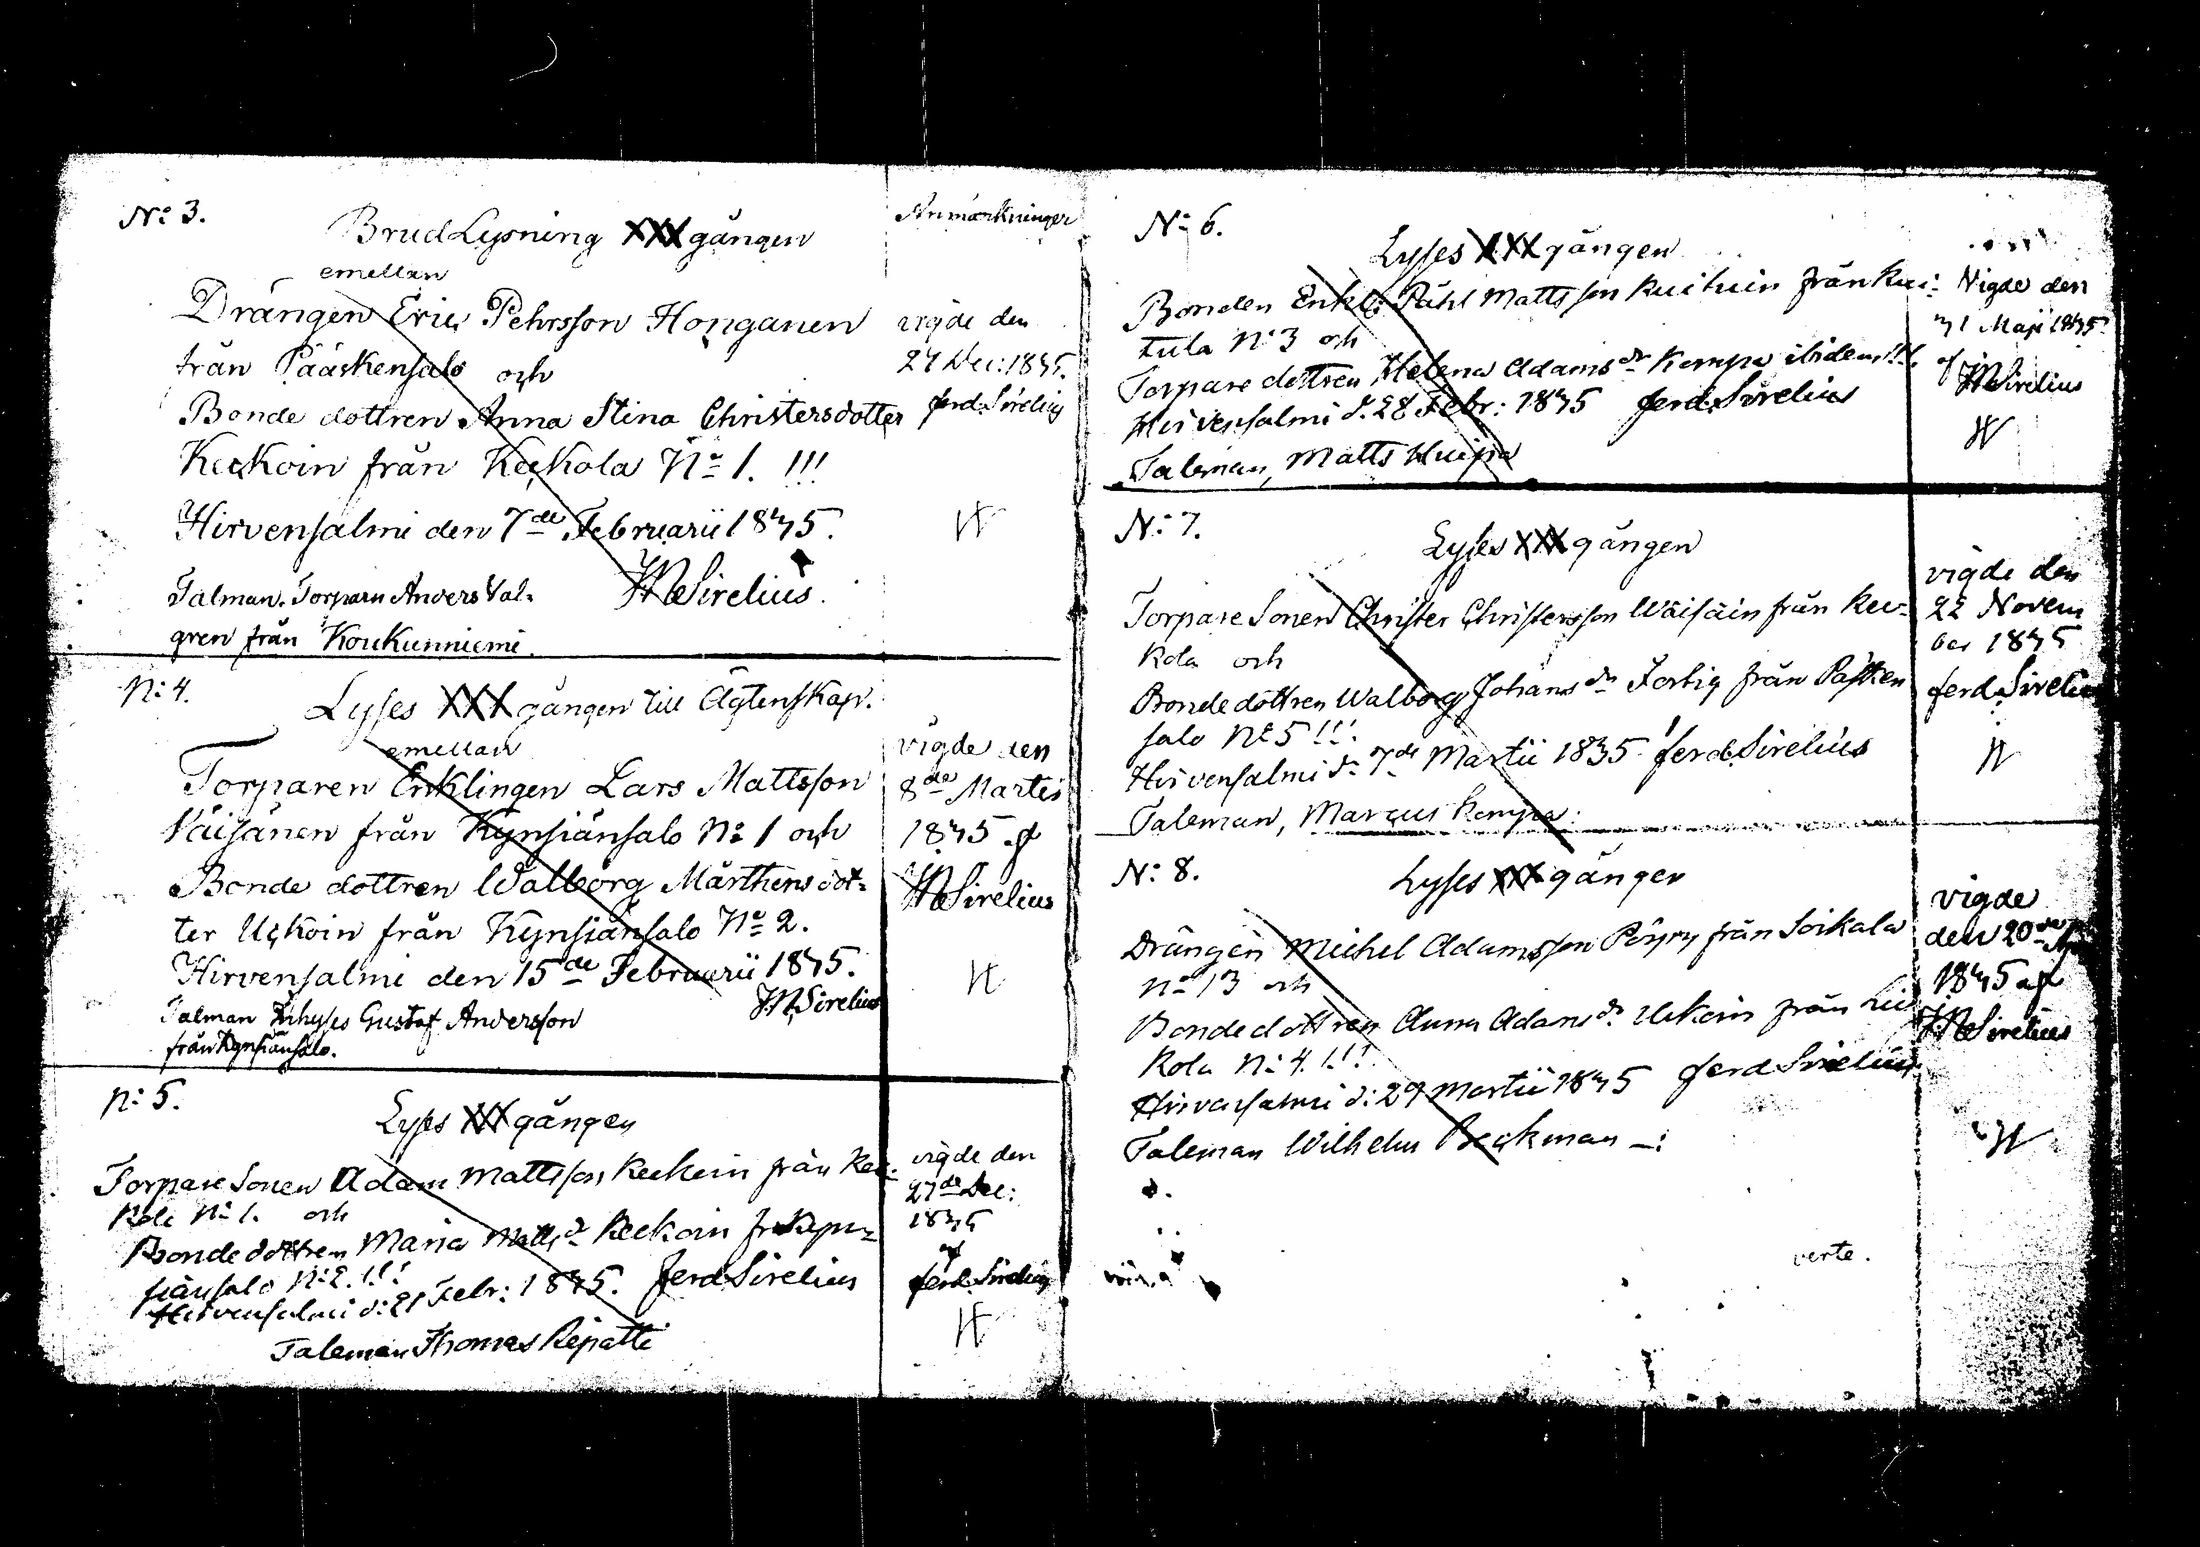 N: 3.
BrudLysning XXX gången
emellan
Drängen Eric Pehrsson Honganen
från Pääskensalo och
Bonde dottren Anna Stina Christersdotter
Keckoin från Keckola No 1. !!!
Hirvensalmi den 7de Februarii 1845.
Talman. Torparn Anders Val-
gren från Koukunniemi.
Sirelius.
Anmärkninger
vigde den
27 Dec: 1845.
ferd. Sirelius
N: 4.
Lyses XXX gången till Ägtenskap.
emellan
Torparen Enklingen Lars Mattsson
Väisänen från Kynsiänsalo No 1 och
Bonde dottren Walborg Mårthensdot-
ter Uckoin från Kynsiänsalo No 2.
Hirvensalmi den 15de Februarii 1845.
Sirelius
Talman Inhyses Gustaf Andersson
från Kynsiänsalo.
vigde den
8de Martii
1845 af
Sirelius
N: 5.
Lyses XXX gången
Torpare Sonen Adam Mattsson Keckoin från Kec-
kola No 1. och
Bonde dottren Maria Mattsdr Keckoin fr Kyn-
siänsalo No 2. !!!
Hirvensalmi d: 21 Febr: 1845. Ferd Sirelius
Taleman Thomas Ripatti
vigde den
27de Dec:
1845
af
ferd. Sirelius
N: 6.
Lyses XXX gången
Bonden Enkl: Påhl Mattsson Kuituin från Kui-
tula No 3 och
Torpare dottren Helena Adamsdr Kempa ibidem !!!
Hirvensalmi d. 28 Febr: 1845 ferd. Sirelius
Taleman, Matts Huipa
Vigde den
31 Maji 1845
af
Sirelius
N: 7.
Lyses XXX gången
Torpare Sonen Christer Christersson Wäisäin från Kec-
kola och
Bonde dottren Walborg Johansdr från Pässken
salo No 5 !!!
Hirvensalmi d. 7de Martii 1845 ferd. Sirelius
Taleman, Marcus Kempa:
vigde den
22 Novem
ber 1845
ferd. Sirelius
N: 8.
Lyses XXX gången
Drängen Michel Adamsson Pöyry från Soikala
No 13 och
Bonde dottren Anna Adamsdr Uckoin från
kola No 4 !!!
Hirvensalmi d: 29 Martii 1845 ferd Sirelius
Taleman Wilhelm Beckman —:
vigde
den 20de
1845 af
Sirelius
verte.